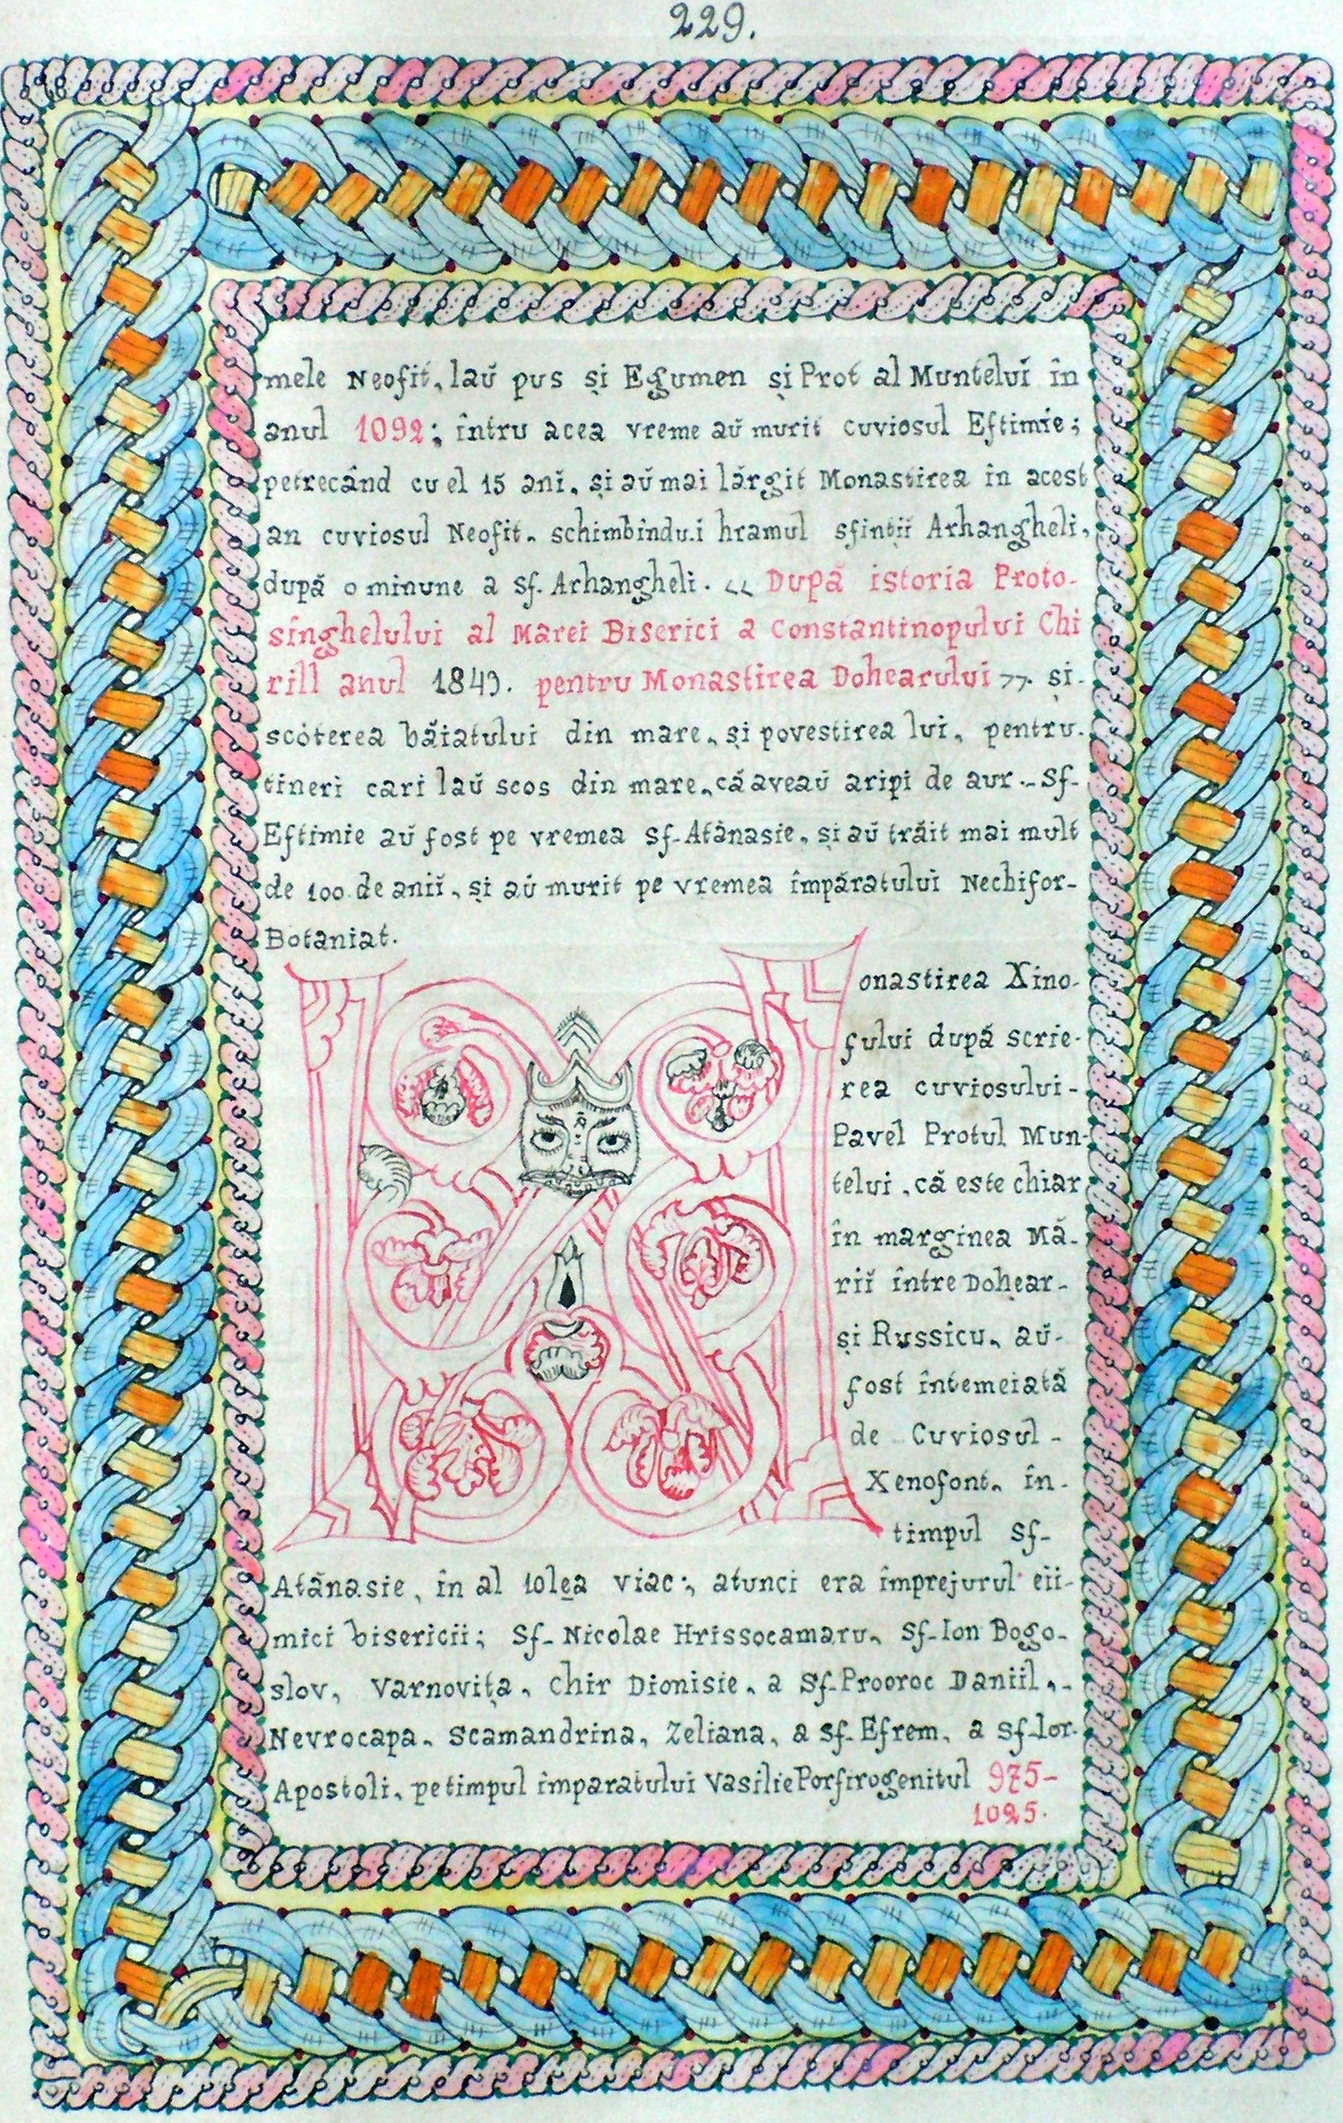 229.
mele Neofit, laŭ pus și Egumen și Prot al Munteluĭ în
anul 1092; întru acea vreme aŭ murit cuviosul Eftimie;
petrecând cu el 15 anĭ, și aŭ mai lărgit Monastirea în acest
an cuviosul Neofit, schimbîndu.i hramul sfinții Arhangheli,
după o minune a sf. Arhangheli. „ După istoria Proto-
sînghelului al Marei Biserici a Constantinopului Chi
rill anul 1849. pentru Monastirea Dohearului ”. și-
scóterea băiatului din mare, și povestirea lui, pentru-
tineri cari laŭ scos din mare, că aveaŭ aripi de aur.- Sf-
Eftimie aŭ fost pe vremea Sf-Atănasie, și aŭ trăit mai mult
de 100 de aniĭ, și aŭ murit pe vremea împăratului Nechifor-
Botaniat.
Monastirea Xino-
fului după scrie-
rea cuviosului-
Pavel Protul Mun-
telui, că este chiar
în marginea Mă-
riĭ între Dohear-
și Russicu, aŭ-
fost întemeiată
de Cuviosul-
Xenofont, în-
timpul Sf-
Atănasie, în al 10lea viac; atunci era împrejurul eii-
mici bisericii; Sf- Nicolae Hrissocamaru, Sf-Ion Bogo-
slov, Varnovița, chir Dionisie, a Sf-Prooroc Daniil,-
Nevrocapa, Scamandrina, Zeliana, a Sf- Efrem, a Sf-lor-
Apostoli, pe timpul împaratului Vasilie Porfirogenitul 975-
1025.